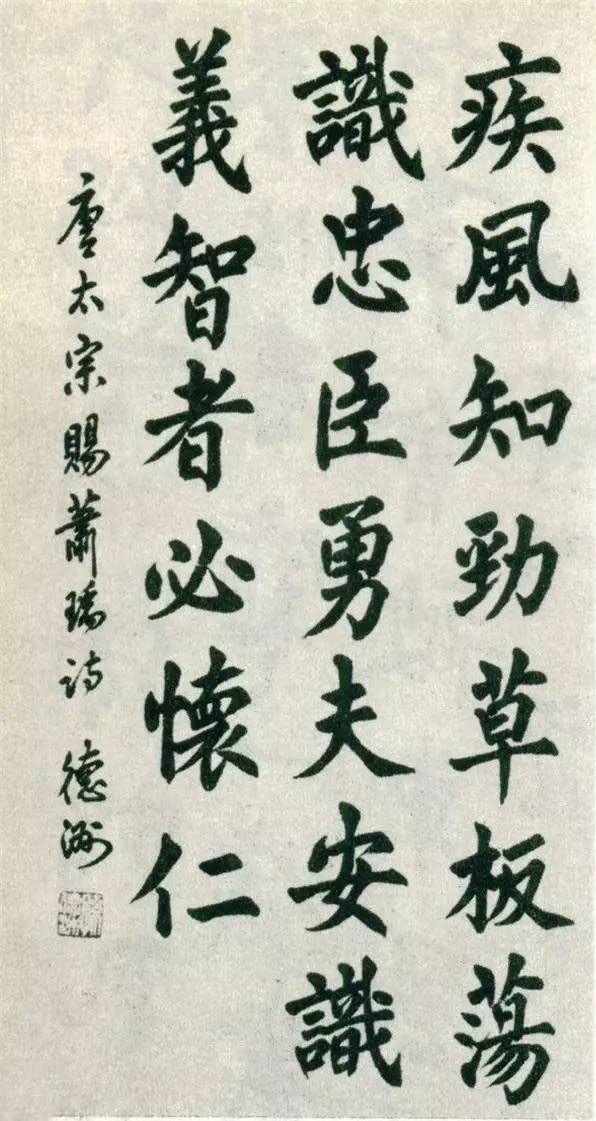 疾風知勁草板蕩
識忠臣勇夫安識
義智者必懷仁
唐太宗賜蕭瑀诗 德洲